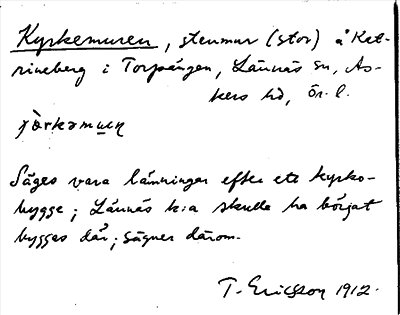 Kyrkemuren, stenmur (stor) å Kat-
rineberg i Torpängen, Lännäs sn, As-
kers hd, Ör. l.
Säges vara lämningar efter ett kyrko-
bygge; Lännäs k:a skulle ha börjat
byggas där; sägner därom.
T. Ericsson 1912.